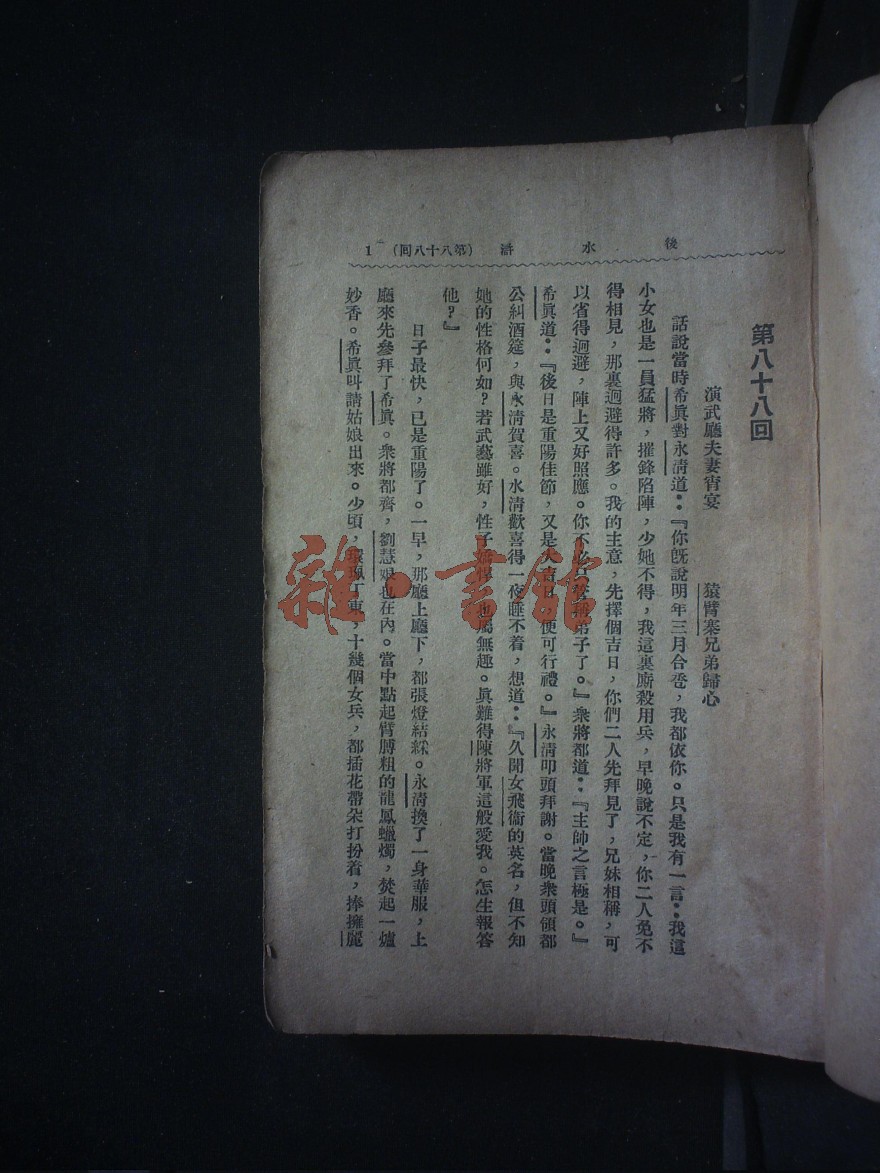 後水滸 (第八十八回) 1
第八十八回
演武廳夫妻宵宴 猿臂寨兄弟歸心
話說當時希眞對永清道：『你旣說明年三月合巹，我都依你。只是我有一言：我這
小女也是一員猛將，摧鋒陷陣，少她不得，我這裏廝殺用兵，早晚說不定，你二人免不
得相見，那裏迴避得許多。我的主意，先擇個吉日，你們二人先拜見了，兄妹相稱，可
以省得迴避，陣上又好照應。你不必只管稱弟子了。』衆將都道：『主帥之言極是。』
希眞道：『後日是重陽佳節，又是大吉日，便可行禮。』永清叩頭拜謝。當晚衆頭領都
公糾酒筵，與永清賀喜。永清歡喜得一夜睡不着，想道：『久聞女飛衞的英名，但不知
她的性格何如？若武藝雖好，性子嬌悍，也屬無趣。眞難得陳將軍這般愛我。怎生報答
他？』
日子最快，已是重陽了。一早，那廳上廳下，都張燈結綵。永清換了一身華服，上
廳來先參拜了希眞。衆將都齊，劉慧娘也在內。當中點起臂膊粗的龍鳳蠟燭，焚起一爐
妙香。希眞叫請姑娘出來。少頃，環珮丁東，十幾個女兵，都插花帶朵打扮着，捧擁麗
雜·書館